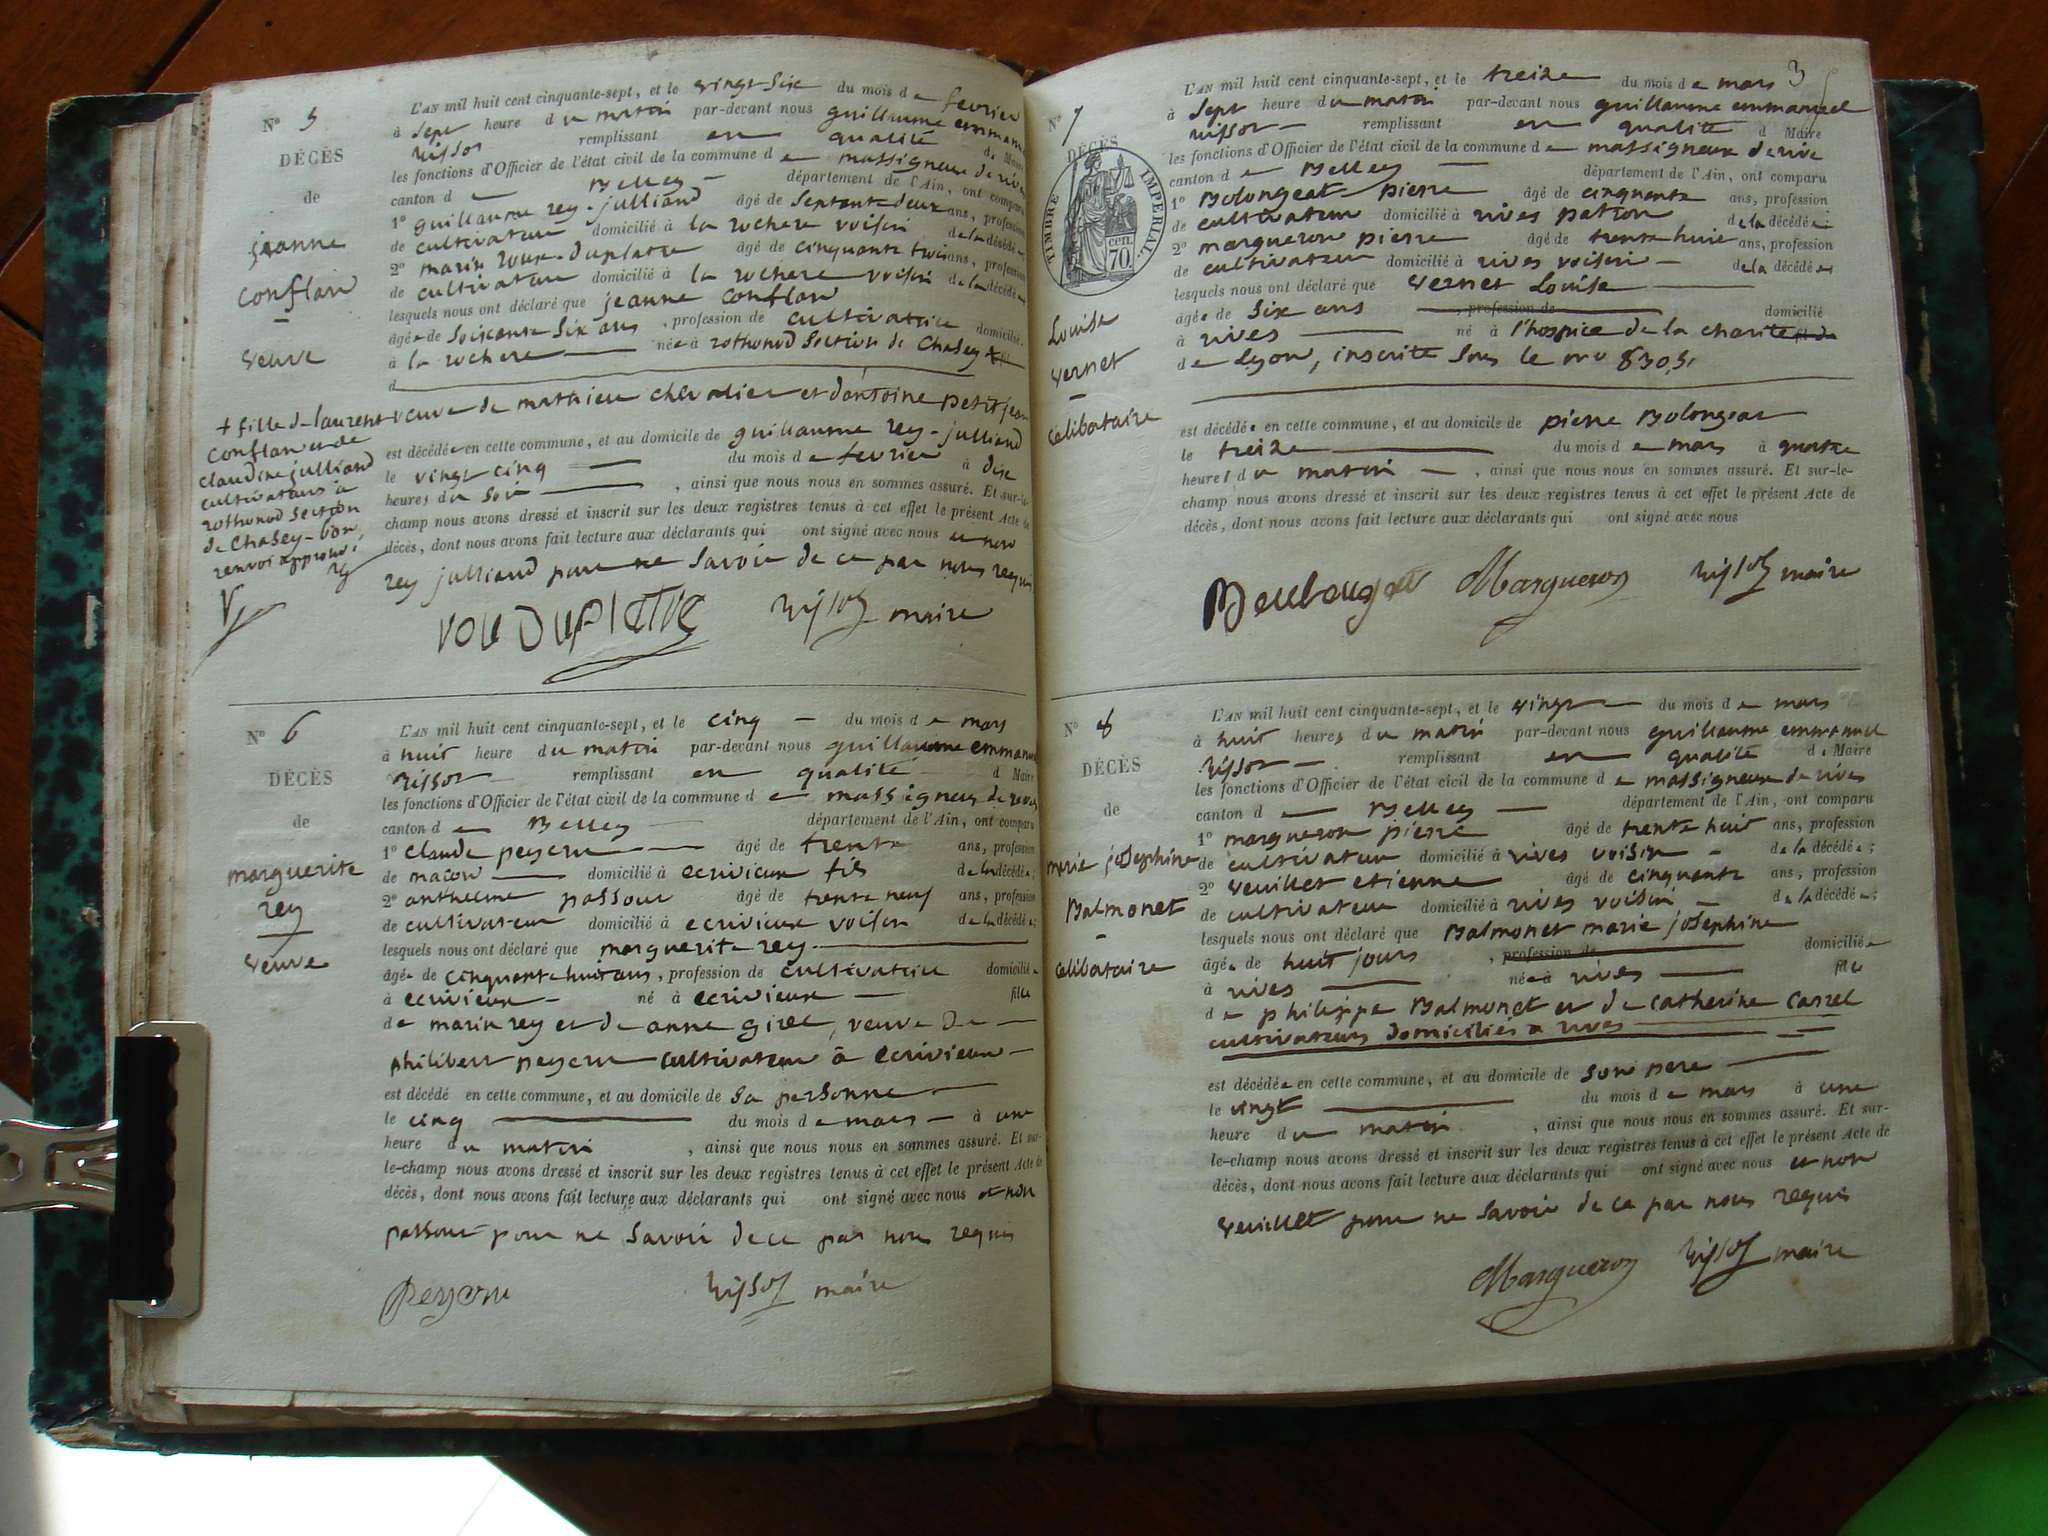 N° 5
DÉCÈS
de
jeanne
Conflan
veuve
L'AN mil huit cent cinquante-sept, et le vingt Six du mois de fevrier
à Sept heure du matin par-devant nous guillaume emmanuel
rissot remplissant en qualité de Maire
les fonctions d'Officier de l'état civil de la commune de massigneux de rive
canton de Belley département de l'Ain, ont comparu
1° guillaume rey-julliand âgé de Septante deux ans, profession
de cultivateur domicilié à la rochere voisin de la décédée
2° marin roux-duplatre âgé de cinquante trois ans, profession
de cultivateur domicilié à la rochere voisin de la décédée
lesquels nous ont déclaré que jeanne Conflan
âgée de Soixante Six ans, profession de cultivatrice domiciliée
à la rochere née à rothonod Section de Chasey +
d
veuve de mathieu chevalier et d'antoine petit jean
+ fille de laurent
conflan et de
claudine julliand
cultivateurs à
rothonod Section
de Chasey-bon
renvoi approuvé
est décédée en cette commune, et au domicile de guillaume rey-julliand
le vingt cinq du mois de fevrier à dix
heures du Soir, ainsi que nous nous en sommes assuré. Et sur-le-
champ nous avons dressé et inscrit sur les deux registres tenus à cet effet le présent Acte de
décès, dont nous avons fait lecture aux déclarants qui ont signé avec nous et non
rey julliand pour ne Savoir de ce par nous requis
rissot maire
N° 6
DÉCÈS
de
marguerite
rey
veuve
L'AN mil huit cent cinquante-sept, et le cinq du mois de mars
à huit heure du matin par-devant nous guillaume emmanuel
rissot remplissant en qualité d Maire
les fonctions d'Officier de l'état civil de la commune de massigneux de rives
canton de Belley département de l'Ain, ont comparu
1° Claude peysson âgé de trente ans, profession
de macon domicilié à ecrivieux fils de la décédée;
2° anthelme passour âgé de trente neuf ans, profession
de cultivateur domicilié à ecrivieux voisin de la décédée;
lesquels nous ont déclaré que marguerite rey
âgée de cinquante huit ans, profession de cultivatrice domiciliée
à ecrivieux né à ecrivieux fille
de marin rey et de anne girel, veuve De
philibert peysson cultivateur à ecrivieux
est décédé en cette commune, et au domicile de Sa personne
le cinq du mois de mars à une
heure du matin, ainsi que nous nous en sommes assuré. Et sur-
le-champ nous avons dressé et inscrit sur les deux registres tenus à cet effet le présent Acte de
décès, dont nous avons fait lecture aux déclarants qui ont signé avec nous et non
passour pour ne Savoir de ce par nous requis
rissot maire
3
N° 7
DÉCÈS
TIMBRE IMPERIAL
70 cen.
Louise
vernet
celibataire
L'AN mil huit cent cinquante-sept, et le treize du mois de mars
à Sept heure du matin par-devant nous guillaume emmanuel
rissot remplissant en qualité d Maire
les fonctions d'Officier de l'état civil de la commune de massigneux de rive
canton de Belley département de l'Ain, ont comparu
1° Bolongeat pierre âgé de cinquante ans, profession
de cultivateur domicilié à rives patron de la décédée;
2° margueron pierre âgé de trente huit ans, profession
de cultivateur domicilié à rives voisin de la décédée
lesquels nous ont déclaré que vernet Louise
âgée de Six ans, profession de domicilié
à rives né à l'hospice de la charité
de Lyon, inscrite Sous le no 8305
est décédée en cette commune, et au domicile de pierre Bolongeat
le treize du mois de mars à quatre
heures du matin, ainsi que nous nous en sommes assuré. Et sur-le-
champ nous avons dressé et inscrit sur les deux registres tenus à cet effet le présent Acte de
décès, dont nous avons fait lecture aux déclarants qui ont signé avec nous
Margueron rissot maire
N° 8
DÉCÈS
de
marie josephine
Balmonet
celibataire
L'AN mil huit cent cinquante-sept, et le vingt du mois de mars
à huit heures du matin par-devant nous guillaume emmanuel
rissot remplissant en qualité de Maire
les fonctions d'Officier de l'état civil de la commune de massigneux de rives
canton de Belley département de l'Ain, ont comparu
1° margueron pierre âgé de trente huit ans, profession
de cultivateur domicilié à rives voisin de la décédée;
2° veuillet etienne âgé de cinquante ans, profession
de cultivateur domicilié à rives voisin de la décédée;
lesquels nous ont déclaré que Balmonet marie josephine
âgée de huit jours, profession de domiciliée
à rives née à rives fille
de philippe Balmonet et de catherine Carrel
cultivateurs Domiciliés à rives
est décédée en cette commune, et au domicile de Son pere
le vingt du mois de mars à une
heure du matin, ainsi que nous nous en sommes assuré. Et sur-
le-champ nous avons dressé et inscrit sur les deux registres tenus à cet effet le présent Acte de
décès, dont nous avons fait lecture aux déclarants qui ont signé avec nous et non
veuillet pour ne Savoir de ce par nous requis
Margueron rissot maire